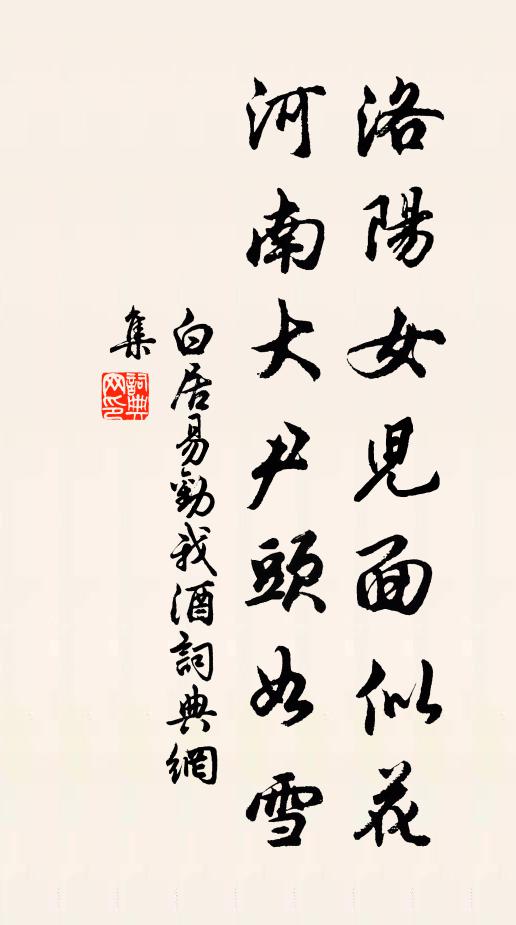 洛陽女兒面似花
河南大尹頭如雪
白居易勸我酒詞典網
集
詞典
网印